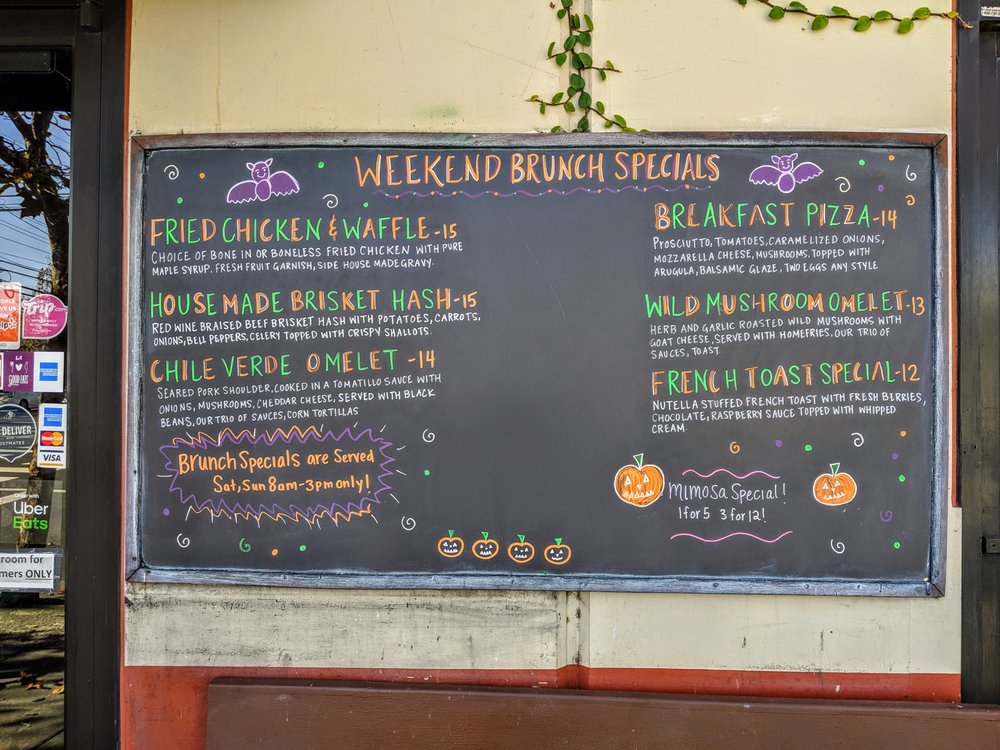 WEEKEND BRUNCH SPECIALS
FRIED CHICKEN & WAFFLE -15
CHOICE OF BONE IN OR BONELESS FRIED CHICKEN WITH PURE
MAPLE SYRUP. FRESH FRUIT GARNISH, SIDE HOUSE MADE GRAVY.
HOUSE MADE BRISKET HASH-15
RED WINE BRAISED BEEF BRISKET HASH WITH POTATOES, CARROTS,
ONIONS, BELL PEPPERS, CELERY TOPPED WITH CRISPY SHALLOTS.
CHILE VERDE OMELET -14
SEARED PORK SHOULDER, COOKED IN A TOMATILLO SAUCE WITH
ONIONS, MUSHROOMS, CHEDDAR CHEESE, SERVED WITH BLACK
BEANS, OUR TRIO OF SAUCES, CORN TORTILLAS
Brunch Specials are Served
Sat, Sun 8am-3pm only!
BREAKFAST PIZZA-14
PROSCIUTTO, TOMATOES, CARAMELIZED ONIONS,
MOZZARELLA CHEESE, MUSHROOMS. TOPPED WITH
ARUGULA, BALSAMIC GLAZE, TWO EGGS ANY STYLE
WILD MUSHROOM OMELET-13
HERB AND GARLIC ROASTED WILD MUSHROOMS WITH
GOAT CHEESE, SERVED WITH HOMEFRIES. OUR TRIO OF
SAUCES, TOAST.
FRENCH TOAST SPECIAL-12
NUTELLA STUFFED FRENCH TOAST WITH FRESH BERRIES,
CHOCOLATE, RASPBERRY SAUCE TOPPED WITH WHIPPED
CREAM.
MIMOSA Special!
1 for 5 3 for 12!
Trip
GOOD EATZ
DELIVER
VISA
Order with
Uber
Eats
room for
mers ONLY